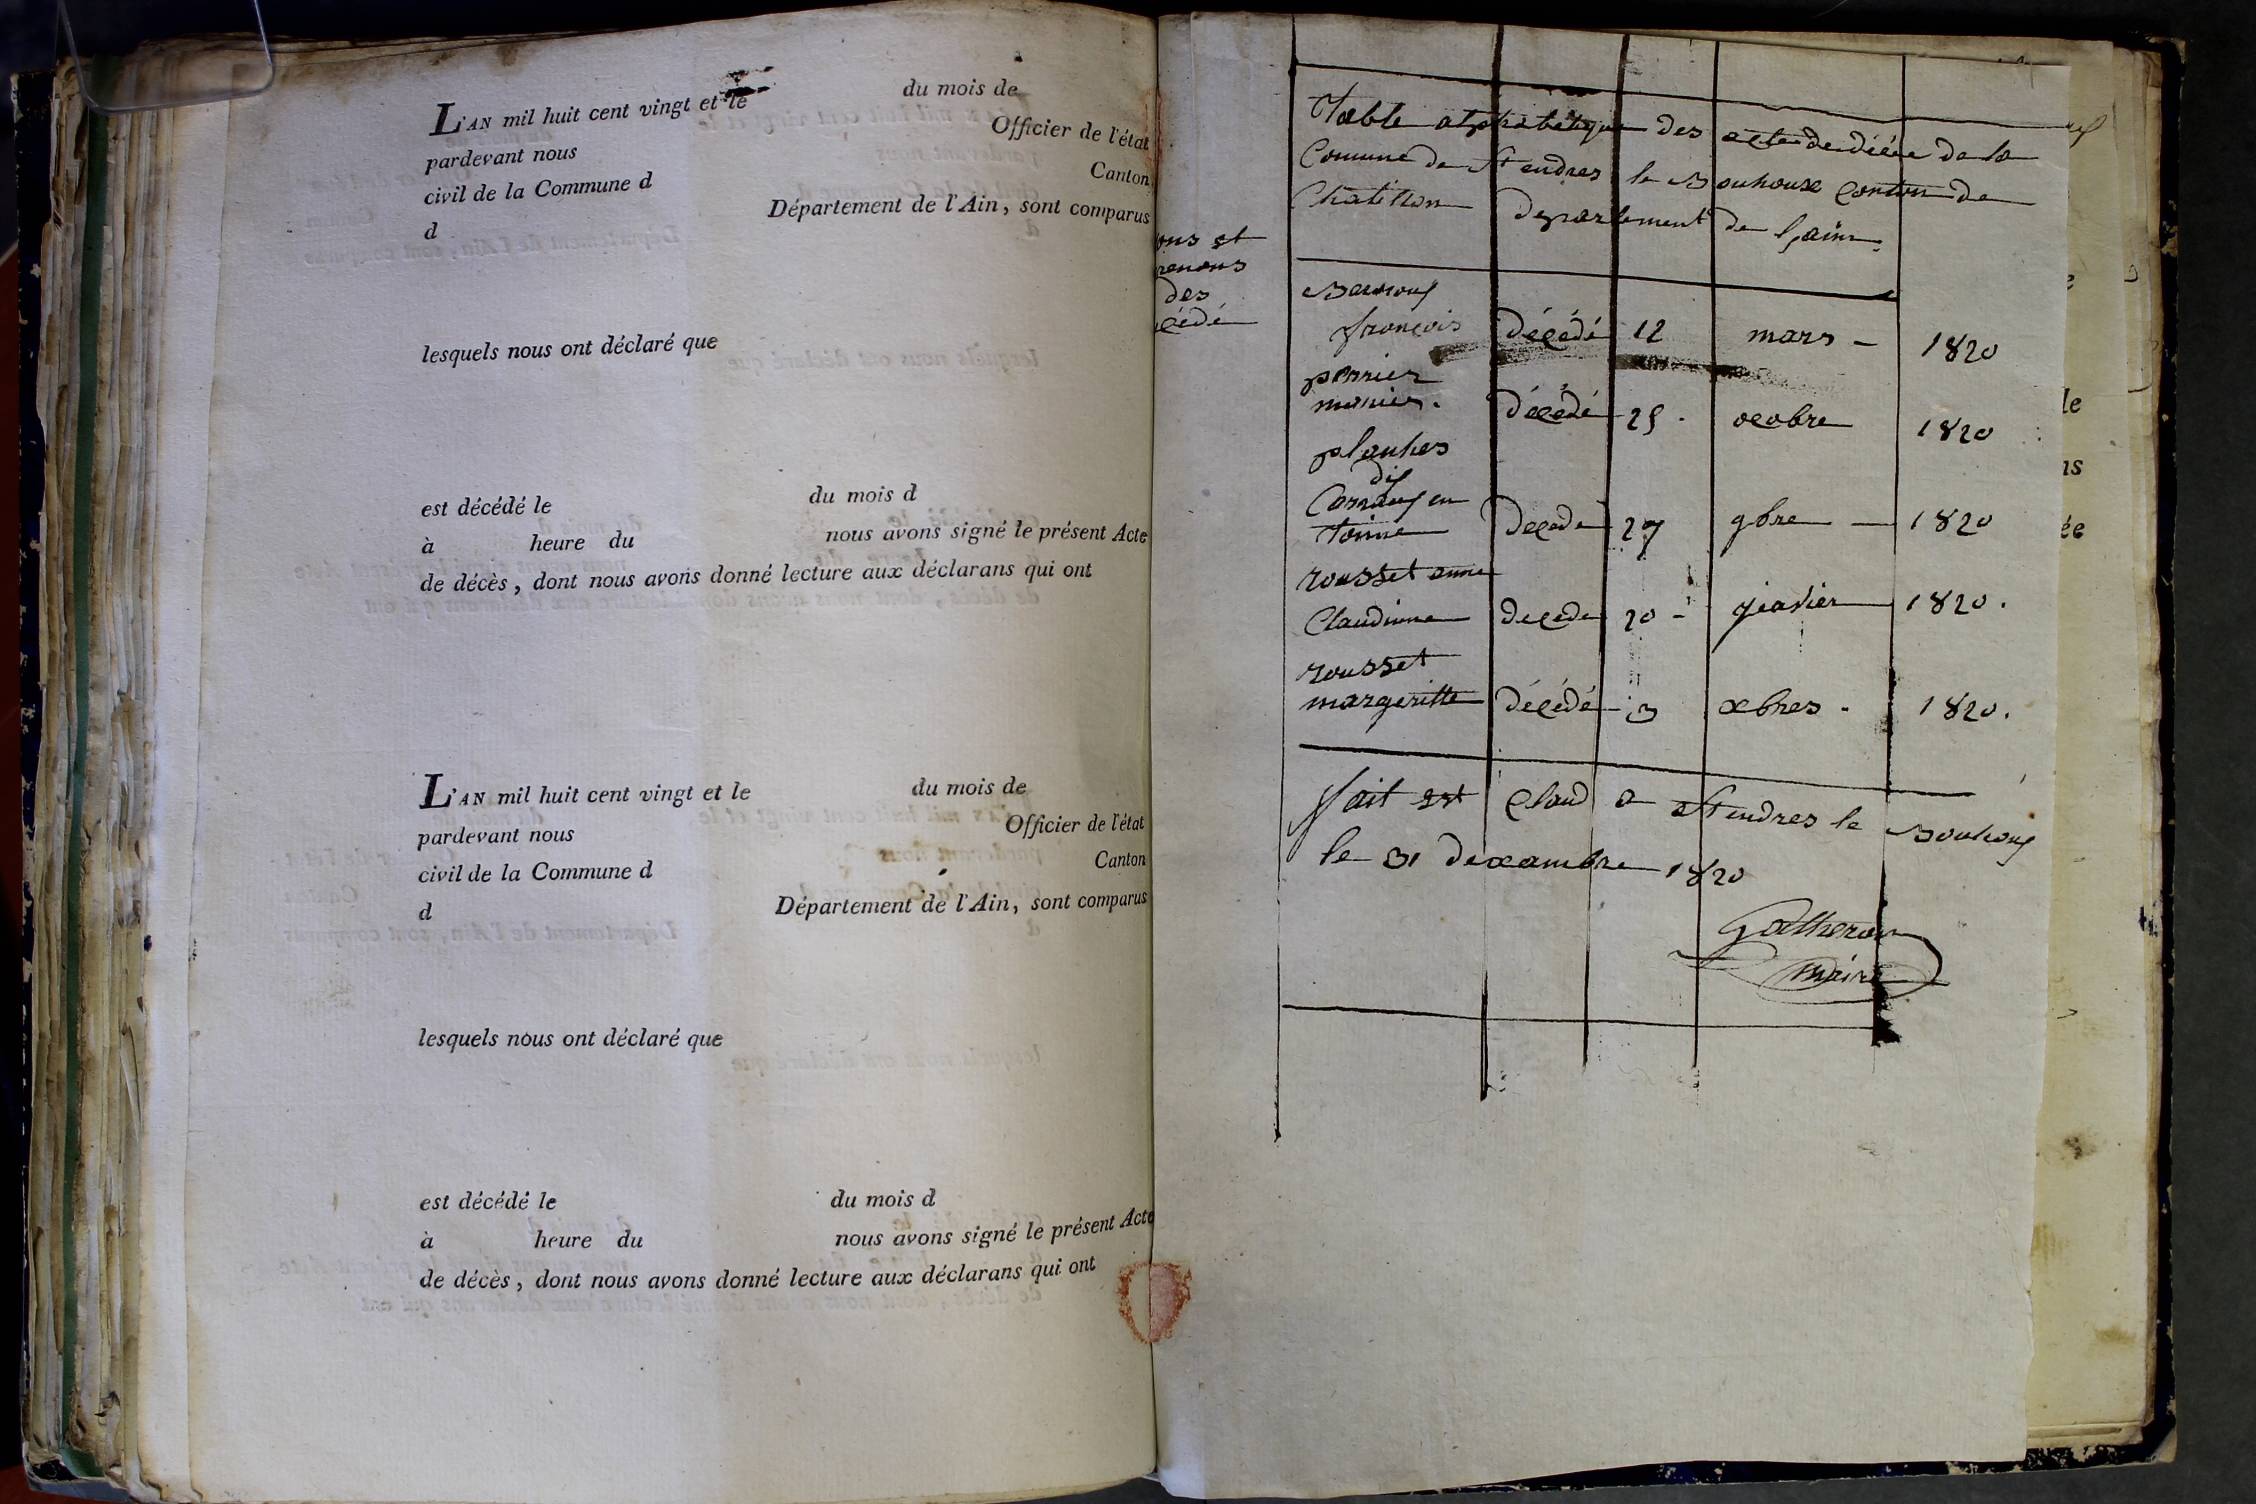 L'AN mil huit cent vingt et le du mois de
pardevant nous Officier de l'état
civil de la Commune d Canton
d Département de l'Ain, sont comparus
lesquels nous ont déclaré que
est décédé le du mois d
à heure du nous avons signé le présent Acte
de décès, dont nous avons donné lecture aux déclarans qui ont
L'AN mil huit cent vingt et le du mois de
pardevant nous Officier de l'état
civil de la Commune d Canton
d Département de l'Ain, sont comparus
lesquels nous ont déclaré que
est décédé le du mois d
à heure du nous avons signé le présent Acte
de décès, dont nous avons donné lecture aux déclarans qui ont
oms et
renoms
des
cédé
Table alphabétique des acte de décée de la
Comune de St endres le Bouhoux Conton de
Chatillon departement de l'ain.
françois décédé 12 mars - 1820
perrier
décédé 25 . ocobre 1820
planhes
dit
toinne decede 27 9bre - 1820
rousset anne
Claudinne decede 20 - jeavier 1820.
rousset
margeritte décédé 3 xbres . 1820.
fait est claud a St endres le Bouhouf
le 31 dexambre 1820
maire